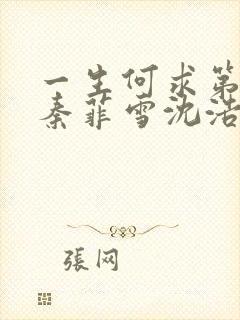 一生何求第
秦菲雪沈浩
張网